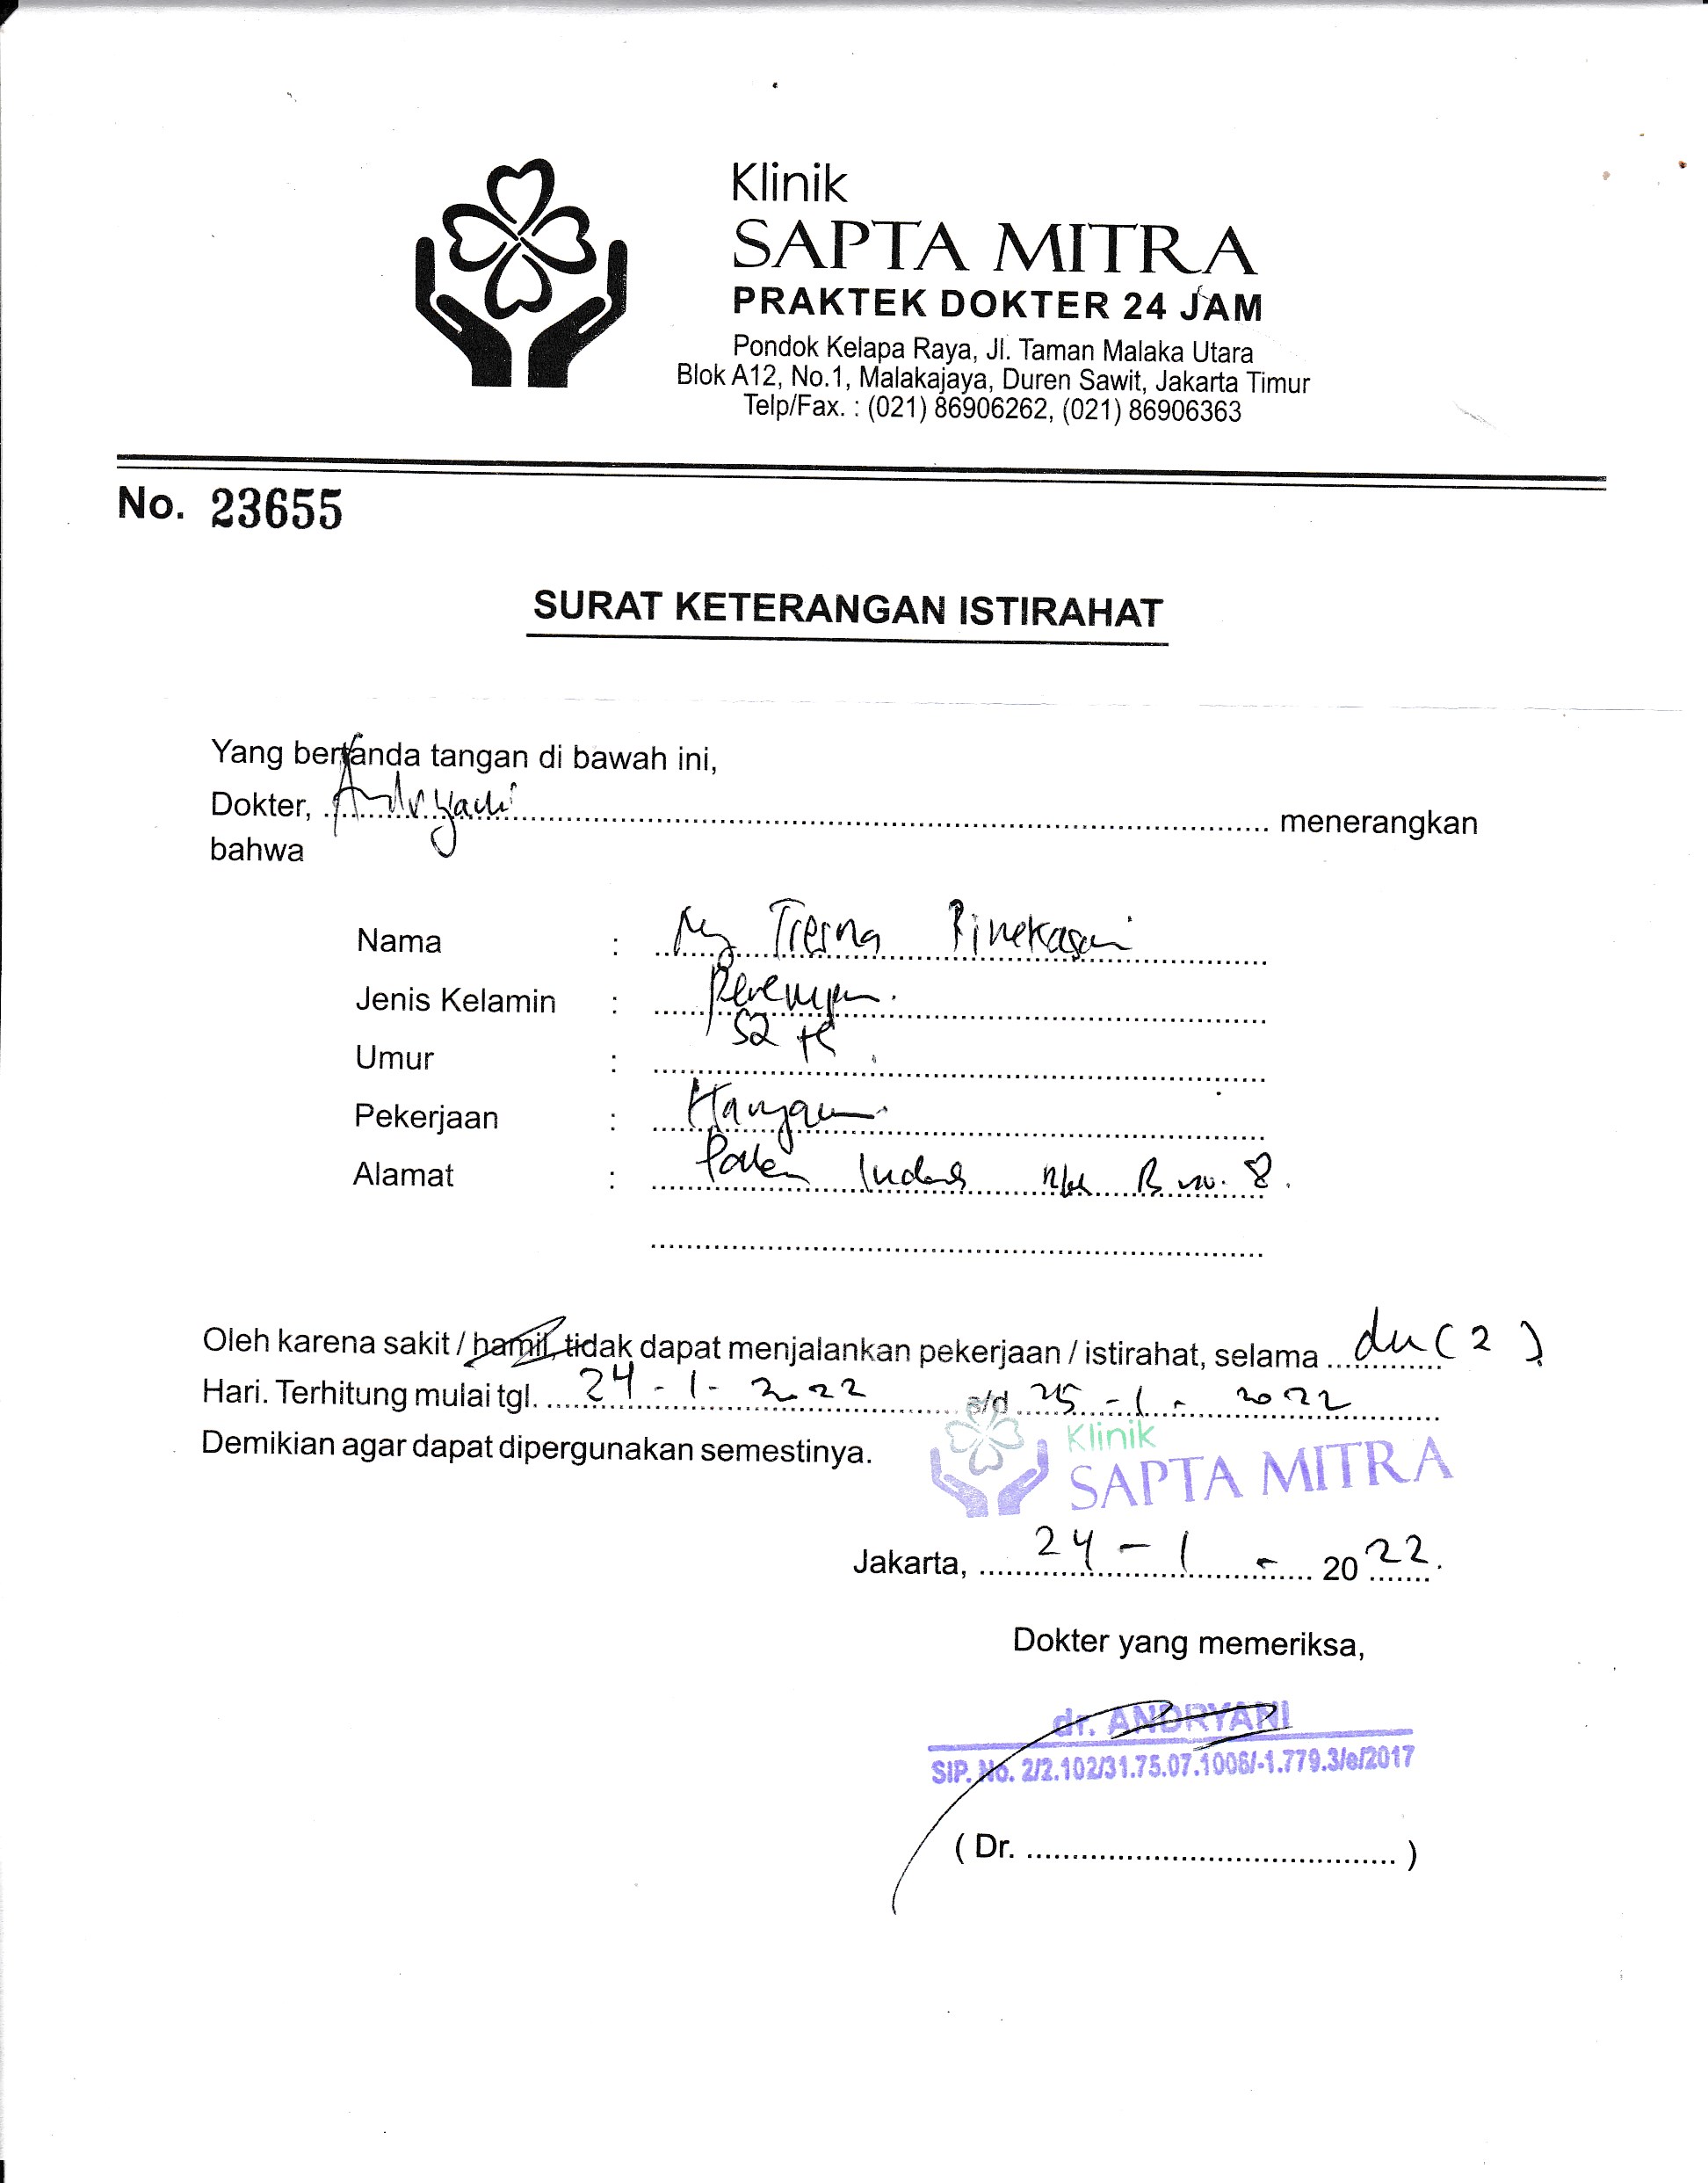 Klinik
SAPTA MITRA
PRAKTEK DOKTER 24 JAM
Pondok Kelapa Raya, Jl. Taman Malaka Utara
Blok A12, No.1, Malakajaya, Duren Sawit, Jakarta Timur
Telp/Fax. : (021) 86906262, (021) 86906363
No. 23655
SURAT KETERANGAN ISTIRAHAT
Yang bertanda tangan di bawah ini,
Dokter, Andryani menerangkan
bahwa
Nama : Ny Tresna Pinekasari
Jenis Kelamin : Perempuan.
Umur : 52 th
Pekerjaan :
Alamat : Indah Blok B no. 8.
Oleh karena sakit / hamil, tidak dapat menjalankan pekerjaan / istirahat, selama dua (2)
Hari. Terhitung mulai tgl. 24 - 1 - 2022 s/d 25 - 1 - 2022
Demikian agar dapat dipergunakan semestinya.
Klinik
SAPTA MITRA
Jakarta, 24 - 1 - 2022.
Dokter yang memeriksa,
dr. ANDRYANI
SIP. No. 2/2.102/31.75.07.1006/-1.779.3/e/2017
( Dr. )